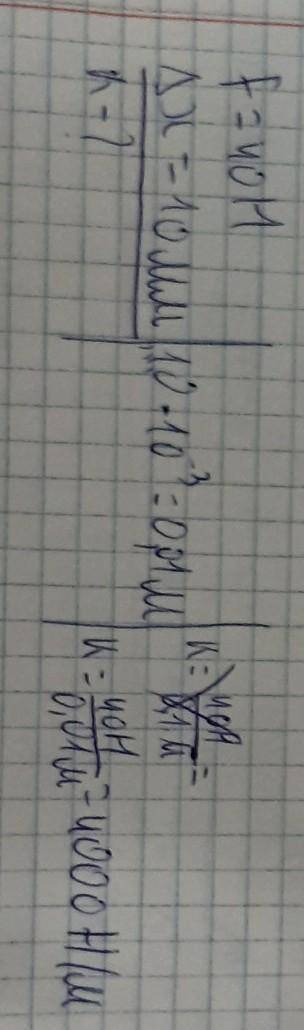 F = 40Н
Δx = 10мм
k - ?
10 · 10⁻³ = 0,01м
k = 40Н / 0,1м =
k = 40Н / 0,01м = 4000 Н/м